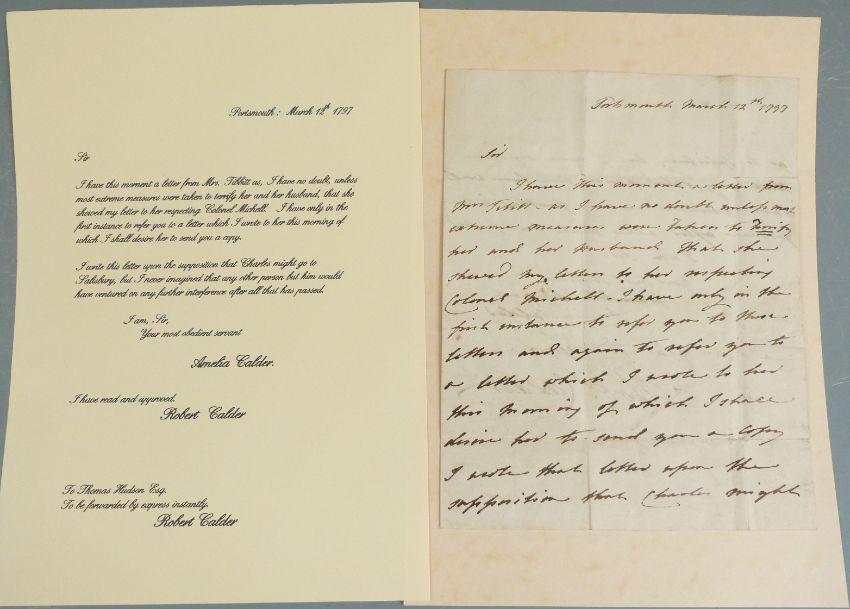 Portsmouth: March 12th 1797
Sir
I have this moment a letter from Mrs. Tibbitt as, I have no doubt, unless
most extreme measures were taken to terrify her and her husband, that she
showed my letter to her respecting Colonel Michell. I have only in the
first instance to refer you to a letter which I wrote to her this morning of
which I shall desire her to send you a copy.
I write this letter upon the supposition that Charles might go to
Salisbury, but I never imagined that any other person but him would
have ventured on any further interference after all that has passed.
I am, Sir,
Your most obedient servant
Amelia Calder.
I have read and approved.
Robert Calder
To Thomas Hudson Esq.
To be forwarded by express instantly.
Robert Calder
Portsmouth March 12th 1797
Sir
I have this moment a letter from
Mrs as I have no doubt unless most
extreme measures were taken to terrify
her and her husband that she
shewed my letters to her respecting
Colonel Michell. I have only in the
first instance to refer you to those
letters and again to refer you to
a letter which I wrote to her
this morning of which I shall
desire her to send you a copy
I wrote that letter upon the
supposition that Charles might